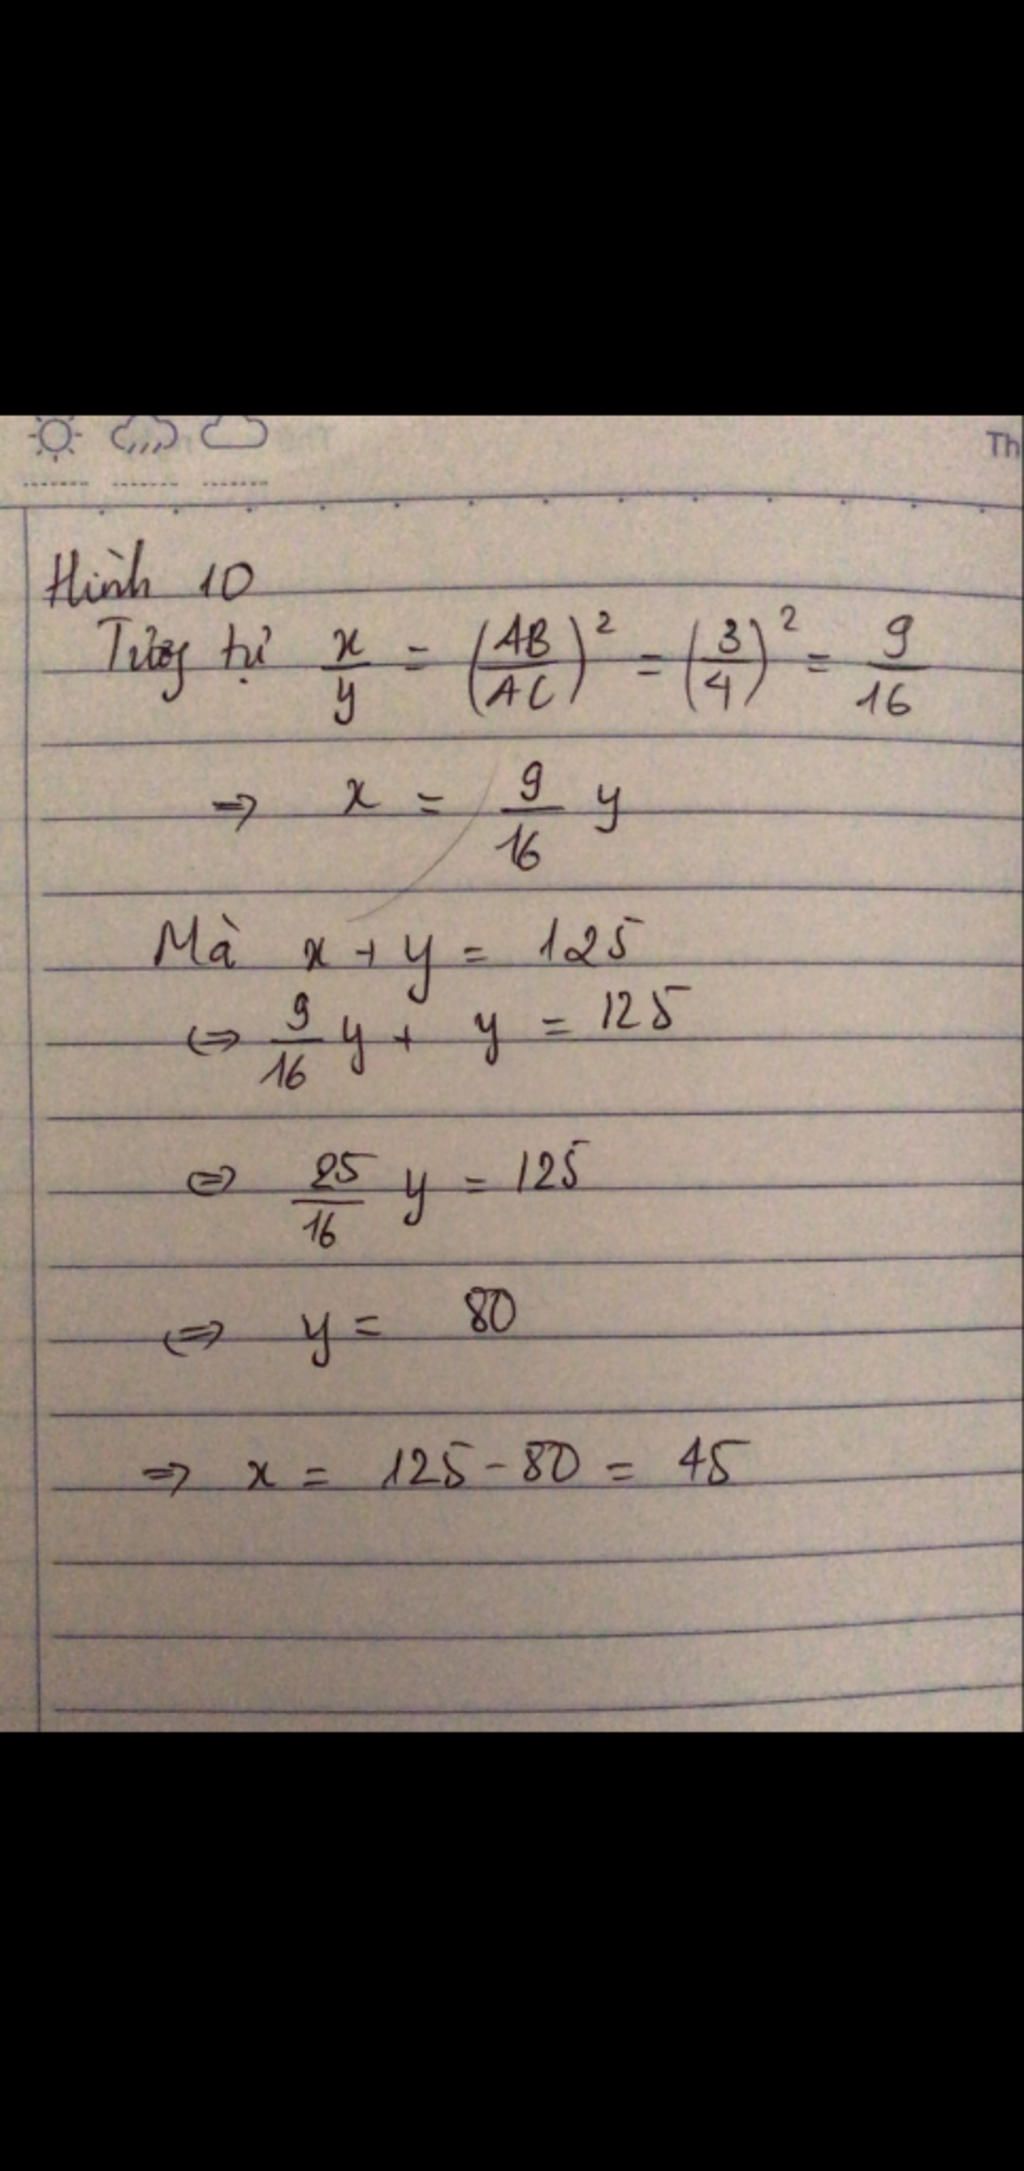 Th
Hình 10
Tương tự x/y = (AB/AC)² = (3/4)² = 9/16
⇒ x = 9/16 y
Mà x + y = 125
⇔ 9/16 y + y = 125
⇔ 25/16 y = 125
⇔ y = 80
⇒ x = 125 - 80 = 45